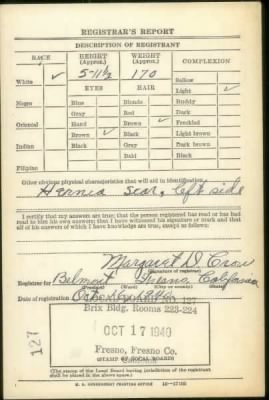 REGISTRAR'S REPORT
DESCRIPTION OF REGISTRANT
RACE HEIGHT (Approx.) WEIGHT (Approx.) COMPLEXION
White ✓ 5-11½ 170 Sallow
EYES HAIR Light ✓
Negro Blue Blonde Ruddy
Gray Red Dark
Oriental Hazel Brown ✓ Freckled
Brown ✓ Black Light brown
Indian Black Gray Dark brown
Bald Black
Filipino
Other obvious physical characteristics that will aid in identification
Hernia scar, left side
I certify that my answers are true; that the person registered has read or has had
read to him his own answers; that I have witnessed his signature or mark and that
all of his answers of which I have knowledge are true, except as follows:
Margaret D. Crow
(Signature of registrar)
Registrar for Belmont Fresno, California
(Precinct) (Ward) (City or county) (State)
Date of registration
127
Brix Bldg. Rooms 223-224
OCT 17 1940
Fresno, Fresno Co.
(STAMP OF LOCAL BOARD)
(The stamp of the Local Board having jurisdiction of the registrant
shall be placed in the above space.)
U. S. GOVERNMENT PRINTING OFFICE 16-17105